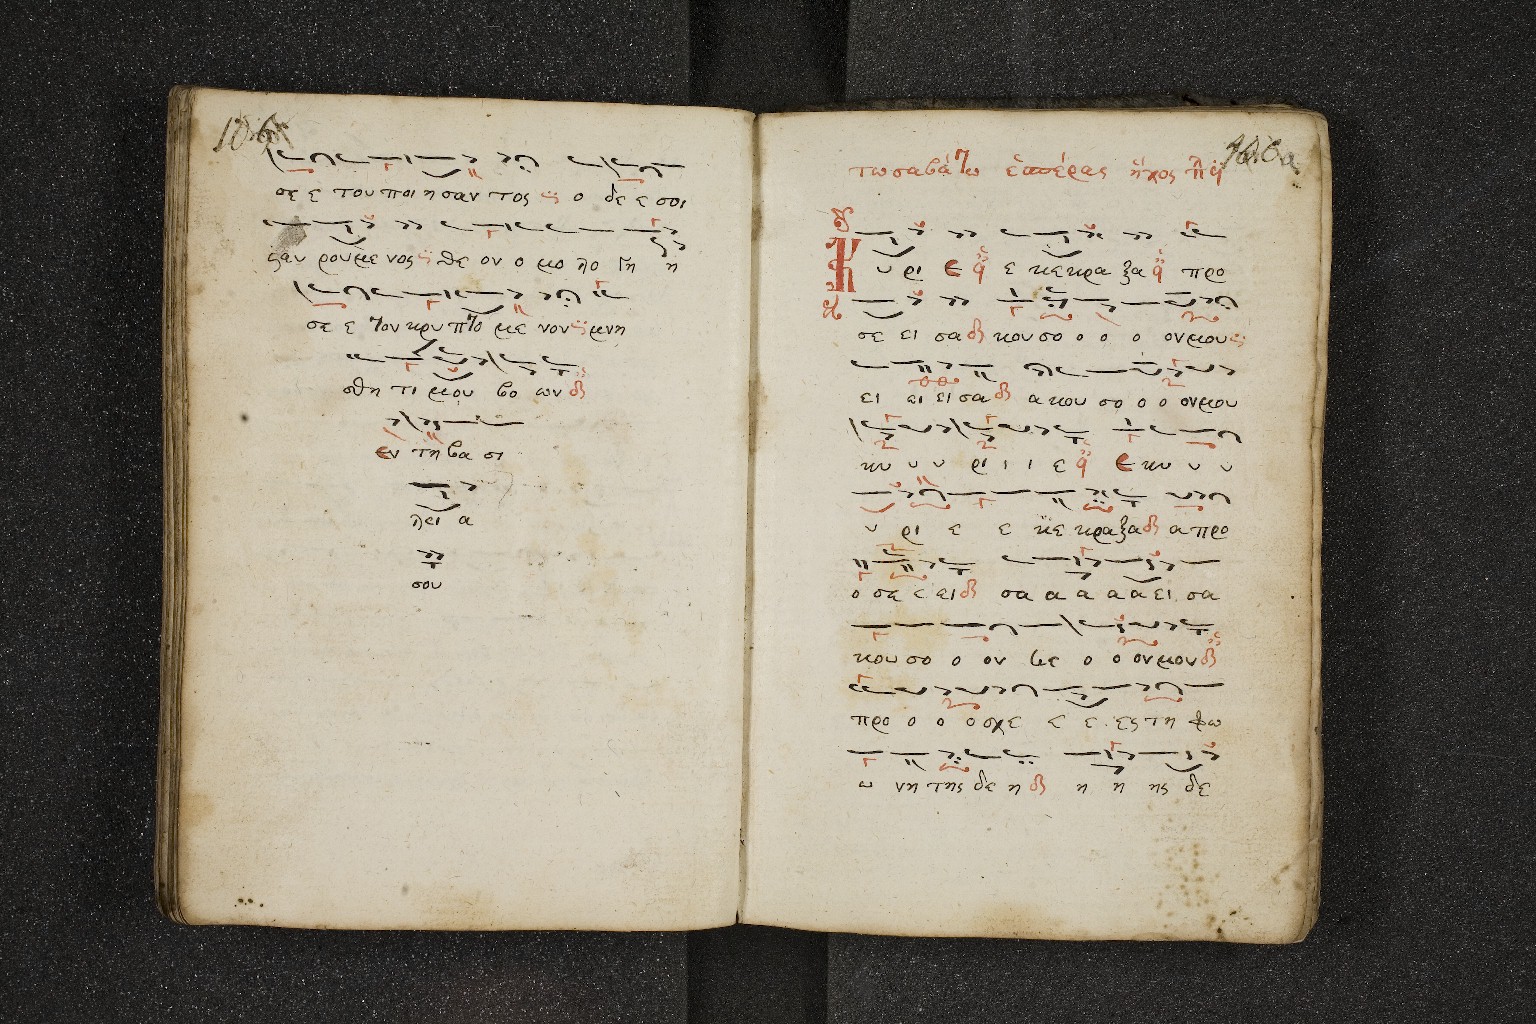 106
σε ε του ποι η σαν τος ο δε ε σοι
ςαυ ρουμε νος θε ον ο μο λο γη η
σε ε τον κρυ πτο με νον μνη
σθη τι μου βο ων
εν τη βα σι
λει α
σου
τω σαβάτω ἑσπέρας ἦχος πλ
Κυ ρι ε ε κε κρα ξα προ
σε ει σα κου σο ο ο ο ον μου
ει ει ει σα α κου σο ο ο ον μου
κυ υ υ ρι ι ι ε ε κυ υ υ
υ ρι ε ε κε κραξα α προ
ο σε ε ει σα α α α α ει σα
κου σο ο ον με ο ο ον μου
προ ο ο ο σχε ε ε ες τη φω
ω νη της δε η η η ης δε